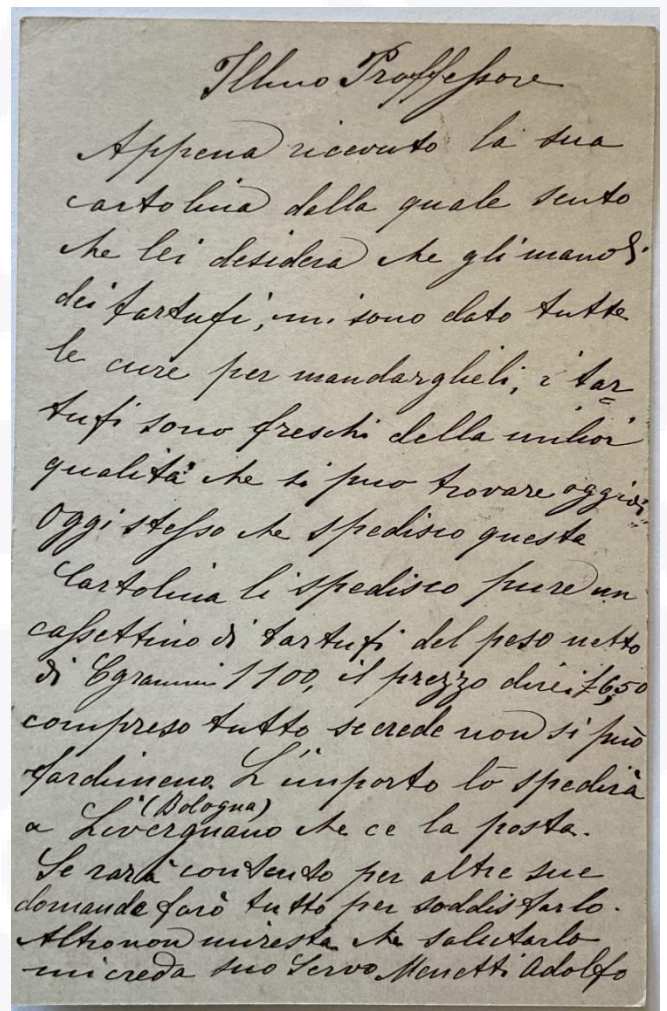 Illmo Proffessore
Appena ricevuto la sua
cartolina dalla quale sento
che lei desidera che gli mandi
dei tartufi, mi sono dato tutte
le cure per mandarglieli, i tar
tufi sono freschi della milior
qualità che si puo trovare oggidi
Oggi stesso che spedisco questa
Cartolina li spedisco pure un
cassettino di tartufi del peso netto
di grammi 1100, il prezzo direi £6,50
compreso tutto se crede non si può
fardimeno. L'importo lo spedirà
(Bologna)
a Livergnano che ce la posta.
Se sarà contento per altre sue
domande farò tutto per soddisfarlo.
Altro non mi resta che salutarlo
mi creda suo Servo Menetti Adolfo